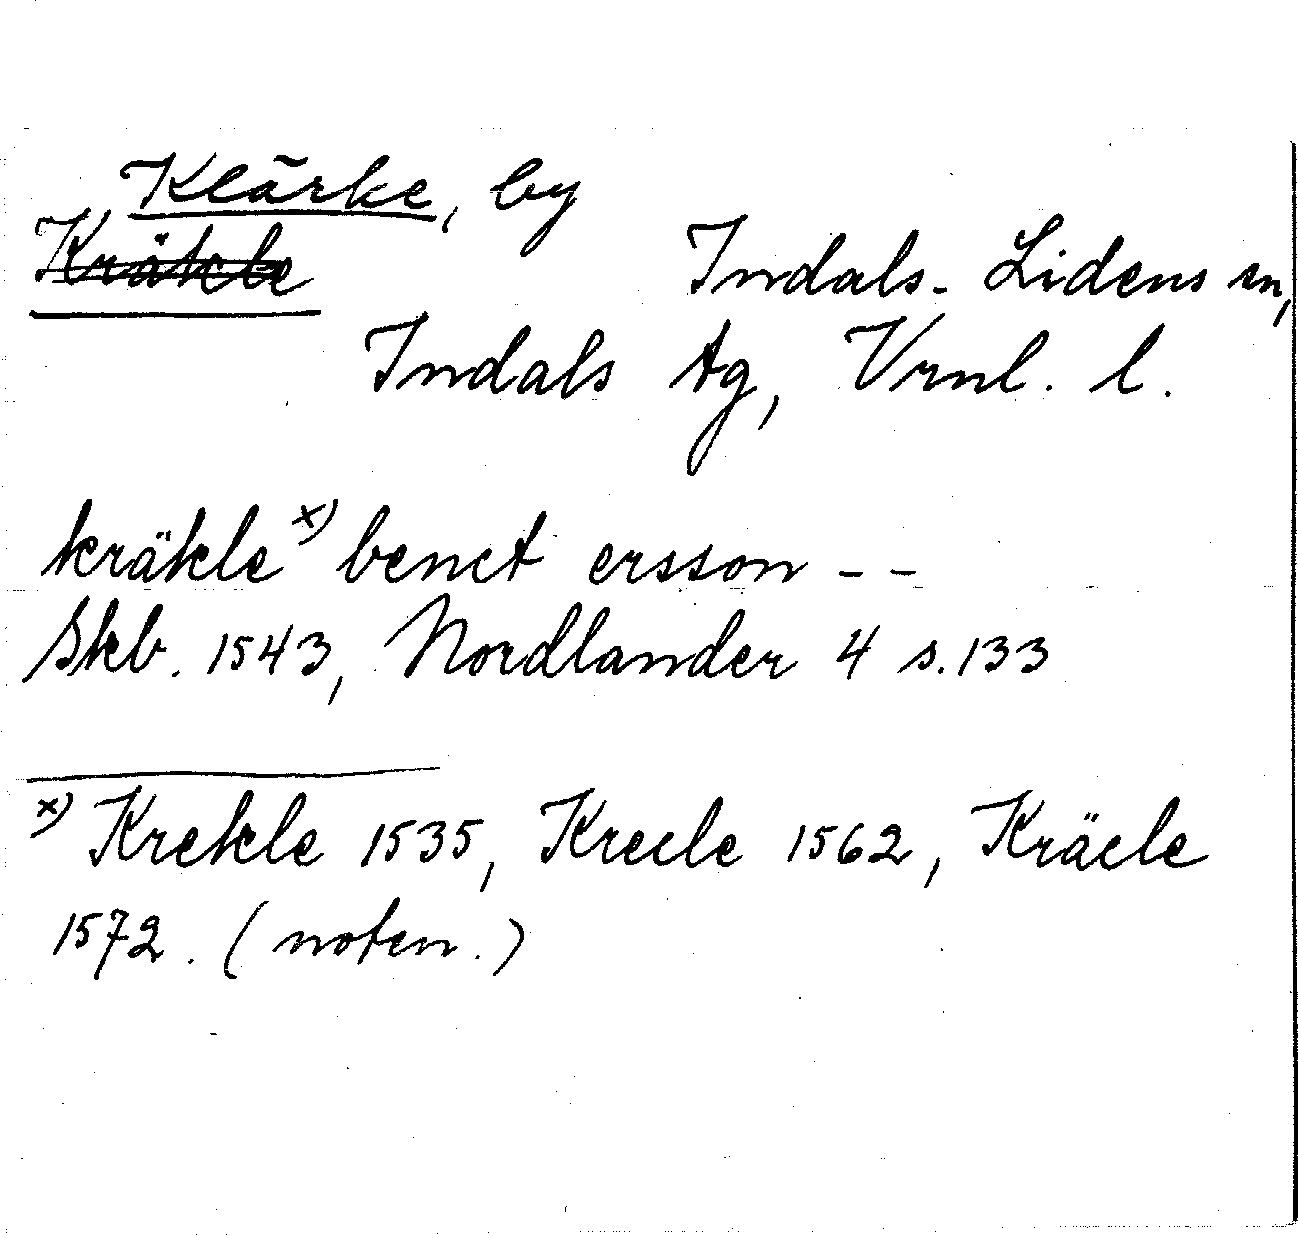 Klärke, by
Kräkle
Indals-Lidens sn,
Indals tg, Vrnl. l.
kräkle x) benct ersson - -
Skb. 1543, Nordlander 4 s. 133
x) Krekle 1535, Krecle 1562, Kräcle
1572. (noten.)